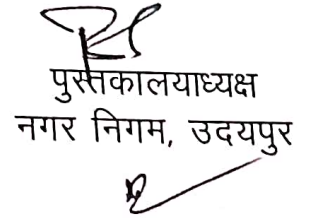 पुस्तकालयाध्यक्ष
नगर निगम, उदयपुर